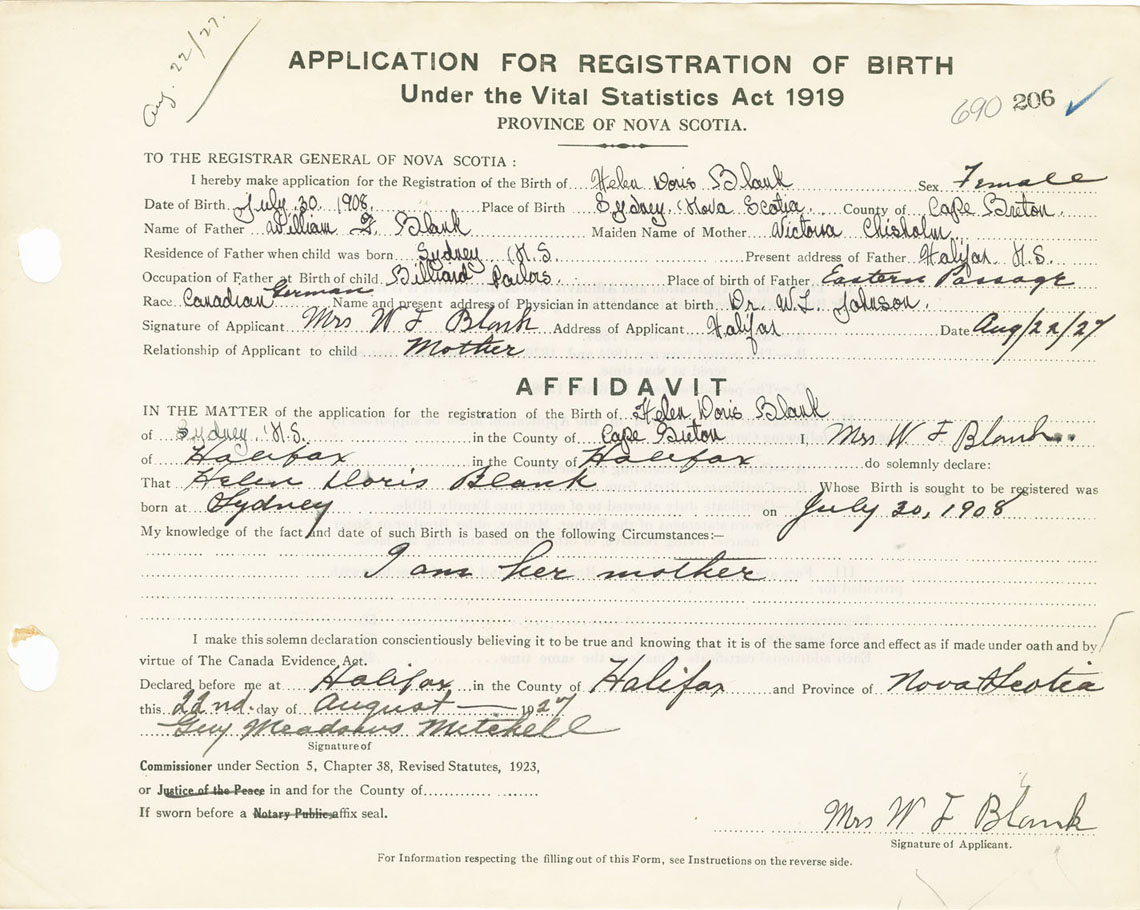 Aug. 22/27.
APPLICATION FOR REGISTRATION OF BIRTH
Under the Vital Statistics Act 1919
690 206
PROVINCE OF NOVA SCOTIA.
TO THE REGISTRAR GENERAL OF NOVA SCOTIA :
I hereby make application for the Registration of the Birth of Helen Doris Blank Sex Female
Date of Birth July 30 1908 Place of Birth Sydney Nova Scotia County of Cape Breton
Name of Father William F. Blank Maiden Name of Mother Victoria Chisholm
Residence of Father when child was born Sydney N.S. Present address of Father Halifax N.S.
Occupation of Father at Birth of child Billiard Parlors Place of birth of Father Eastern Passage
Race Canadian German Name and present address of Physician in attendance at birth Dr. W.L. Johnson.
Signature of Applicant Mrs W F Blank Address of Applicant Halifax Date Aug/22/27
Relationship of Applicant to child Mother
AFFIDAVIT
IN THE MATTER of the application for the registration of the Birth of Helen Doris Blank
of Sydney N.S. in the County of Cape Breton I, Mrs W F Blank
of Halifax in the County of Halifax do solemnly declare:
That Helen Doris Blank Whose Birth is sought to be registered was
born at Sydney on July 30, 1908
My knowledge of the fact and date of such Birth is based on the following Circumstances:—
I am her mother
I make this solemn declaration conscientiously believing it to be true and knowing that it is of the same force and effect as if made under oath and by
virtue of The Canada Evidence Act.
Declared before me at Halifax in the County of Halifax and Province of Nova Scotia
this 22nd. day of August 1927
Guy Meadows Mitchell
Signature of
Commissioner under Section 5, Chapter 38, Revised Statutes, 1923,
or Justice of the Peace in and for the County of
If sworn before a Notary Public affix seal.
Mrs W F Blank
Signature of Applicant.
For Information respecting the filling out of this Form, see Instructions on the reverse side.